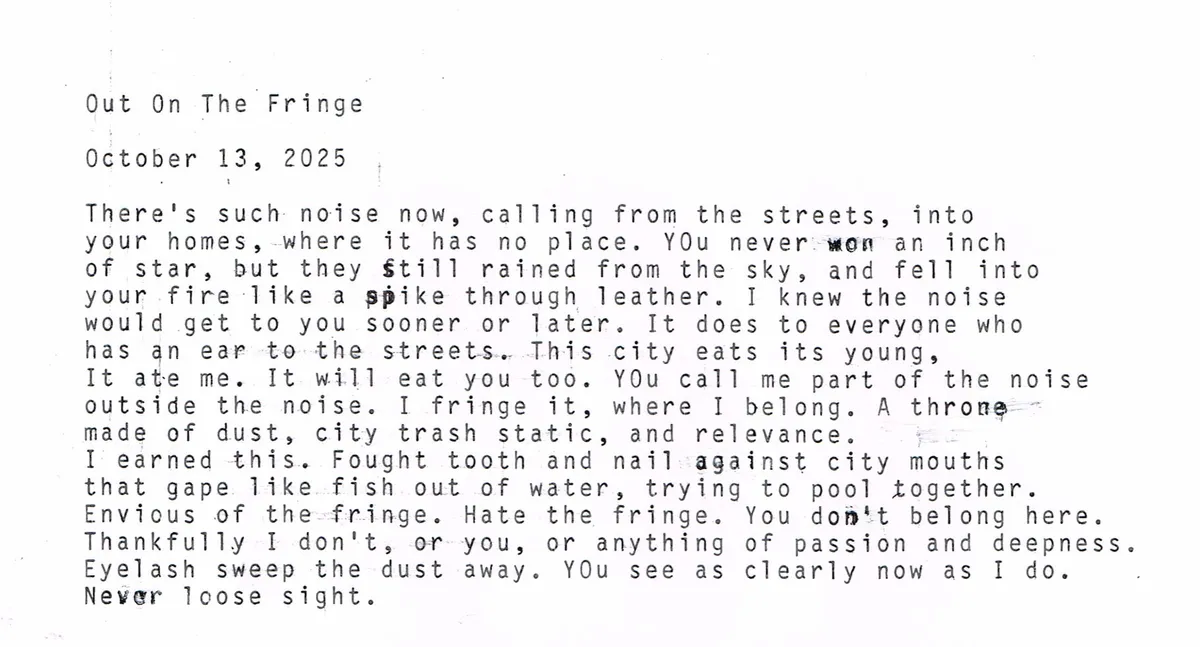 Out On The Fringe
October 13, 2025
There's such noise now, calling from the streets, into
your homes, where it has no place. YOu never won an inch
of star, but they still rained from the sky, and fell into
your fire like a spike through leather. I knew the noise
would get to you sooner or later. It does to everyone who
has an ear to the streets. This city eats its young,
It ate me. It will eat you too. YOu call me part of the noise
outside the noise. I fringe it, where I belong. A throne
made of dust, city trash static, and relevance.
I earned this. Fought tooth and nail against city mouths
that gape like fish out of water, trying to pool together.
Envious of the fringe. Hate the fringe. You don't belong here.
Thankfully I don't, or you, or anything of passion and deepness.
Eyelash sweep the dust away. YOu see as clearly now as I do.
Never loose sight.